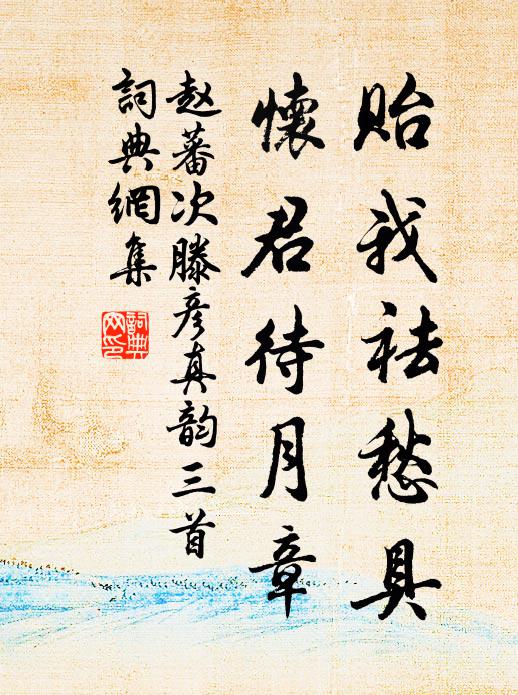 貽我祛愁具
懷君待月章
赵蕃次滕彦真韵三首
詞典網集
詞典网印